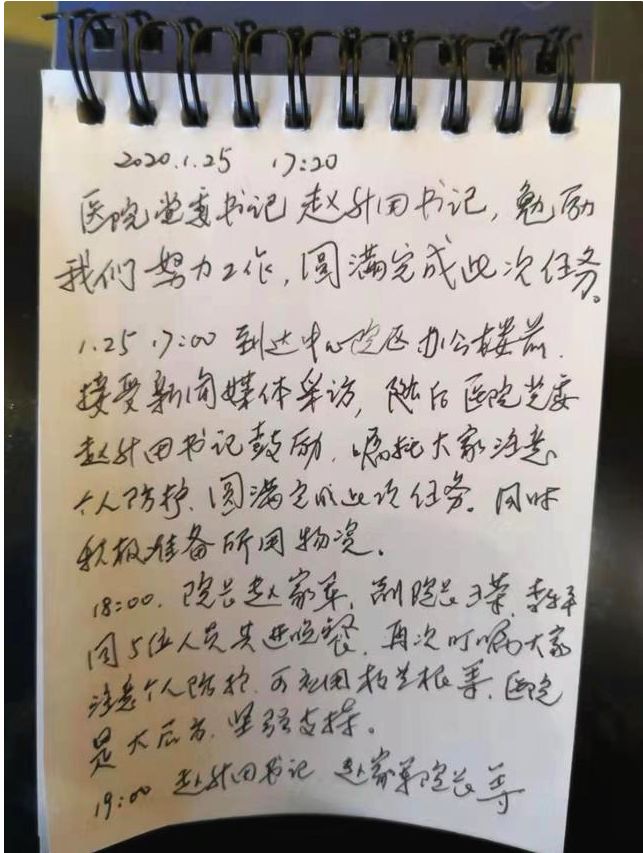 2020.1.25 17:20
医院党委书记赵升田书记,勉励
我们努力工作,圆满完成此次任务。
1.25 17:00 到达中心院区办公楼前.
接受新闻媒体采访,随后医院党委
赵升田书记鼓励.嘱托大家注意
个人防护.圆满完成此次任务。同时
积极准备所用物资。
18:00.院长赵家军,副院长王荣.
同5位人员共进晚餐.再次叮嘱大家
注意个人防护.可应用板兰根等.医院
是大后方.坚强支撑。
19:00 赵升田书记 赵家军院长等